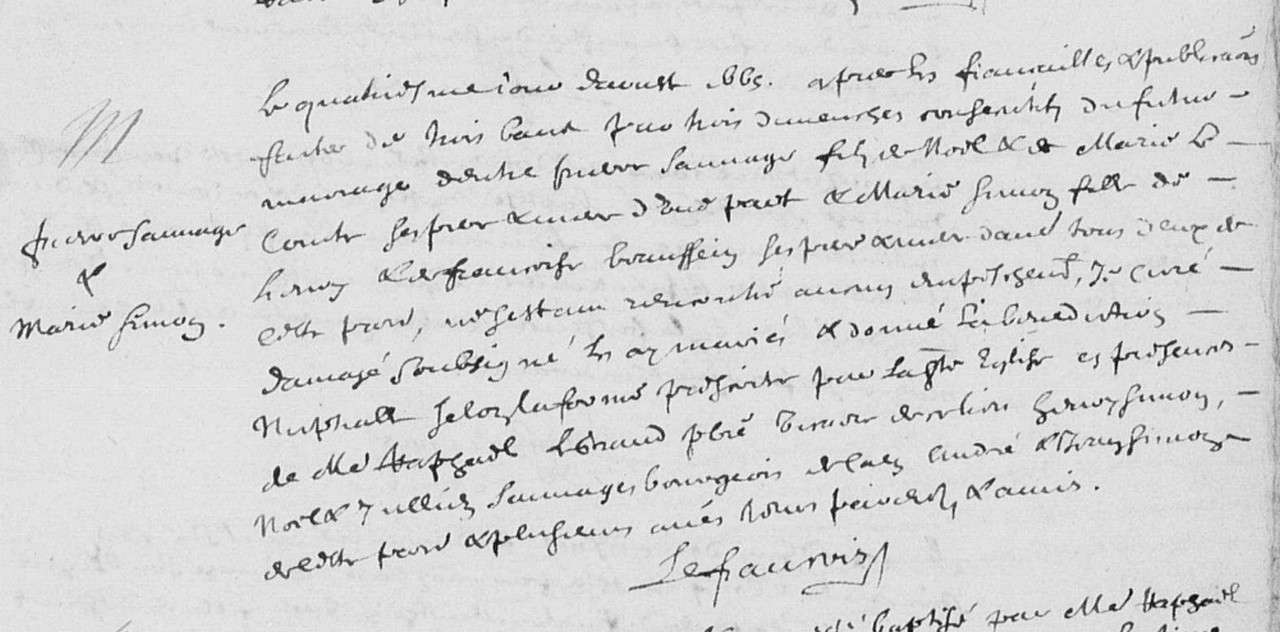 M
Pierre Sauvage
&
Marie Simon.
Le quatriesme iour daoust 1665. apres les fiancailles & publications
faites de trois bans par trois dimenches consecutifs du futur
mariage dentre Pierre Sauvage filz de Noel & de Marie Le
Conte ses pere & mere d'une part & Marie Simon fille de
hervy & de francoise ses pere & mere dautre tous deux de
cette parr, ne sestant rencontré aucun empeschent, Je curé
soubsigné les ay mariés & donné la benediction
Nuptialle selon la forme prescrite par la ste Eglise es presences
de Me Raphaël Legrand pbre vicaire de ce lieu hervy Simon,
Noel & Jullien Sauvages bourgeois de Caen André & Simon
de cette parr & plusieurs aués tous parens, & amis.
Lefrancois
baptisé par Me Raphaël